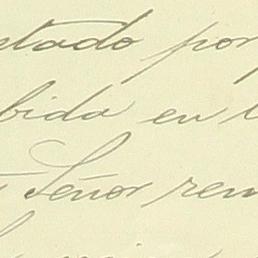 ntado por
bida en l
Señor rem